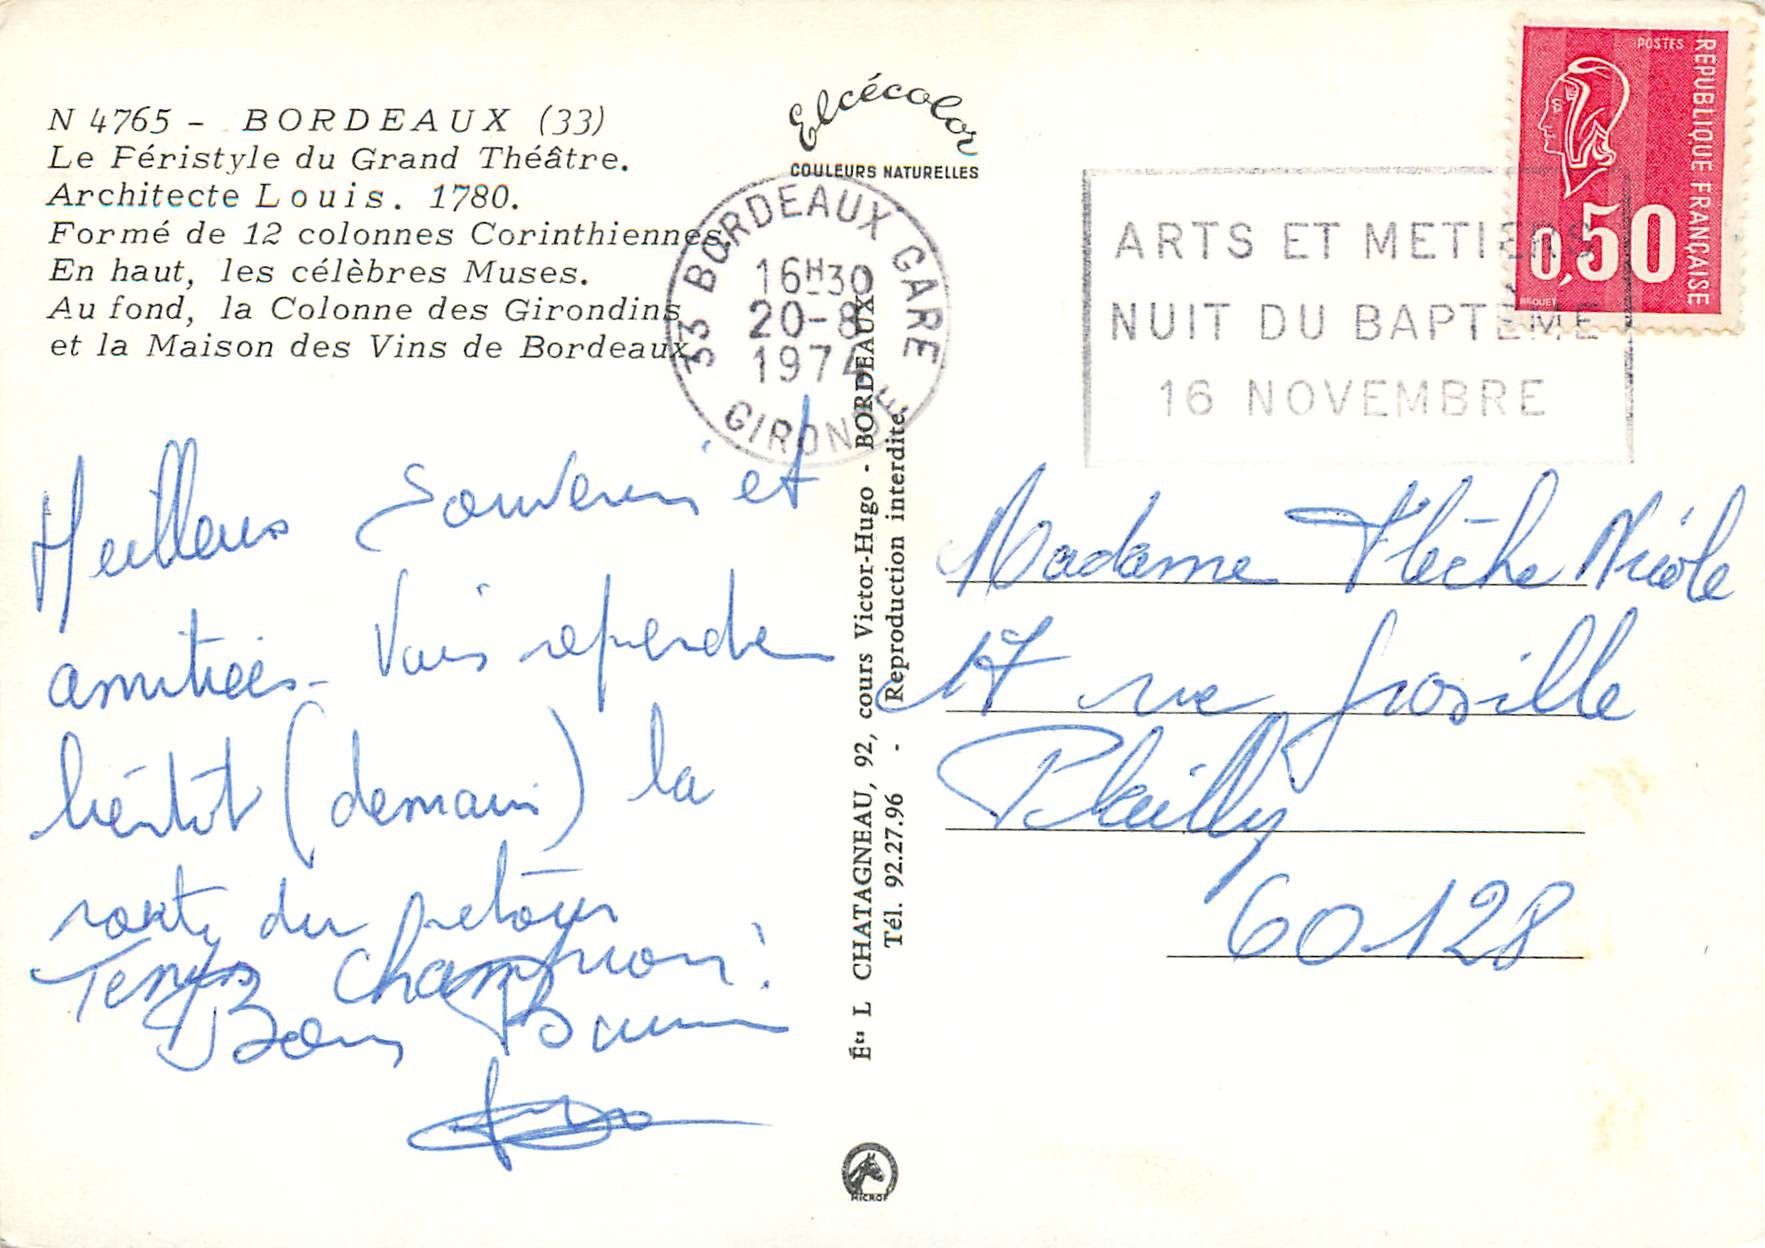 N 4765 - BORDEAUX (33)
Le Féristyle du Grand Théâtre.
Architecte Louis. 1780.
Formé de 12 colonnes Corinthiennes.
En haut, les célèbres Muses.
Au fond, la Colonne des Girondins
et la Maison des Vins de Bordeaux.
Elcécolor
COULEURS NATURELLES
33 BORDEAUX GARE
16H30
20-8
1974
GIRONDE
ARTS ET METIERS
NUIT DU BAPTEME
16 NOVEMBRE
POSTES
REPUBLIQUE FRANÇAISE
0,50
BEQUET
Meilleurs souvenirs et
amitiées - Vais reprendre
bientôt (demain) la
route du retour
Temps Champion!
Bons
Ets L CHATAGNEAU, 92, cours Victor-Hugo - BORDEAUX
Tél. 92.27.96 - Reproduction interdite.
Madame Flèche Nicole
17 rue
Plailly
60128